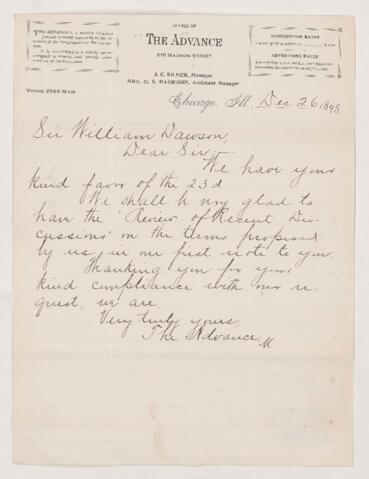 OFFICE OF
THE ADVANCE
215 MADISON STREET
J. C. KILNER, Manager
MRS. O. S. HARRISON, Assistant Manager
THE ADVANCE is a weekly
SUBSCRIPTION RATES
ADVERTISING RATES
'PHONE 2093 MAIN
Chicago, Ill. Dec 26 1895
Sir William Dawson,
Dear Sir:-
We have your
kind favor of the 23d
We shall be very glad to
have the "Review of Recent Dis-
cussions" on the terms proposed
by us in our first note to you.
Thanking you for your
kind compliance with our re-
quest, we are,
Very truly yours,
The Advance
M